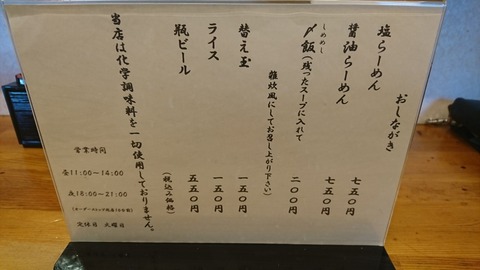 おしながき
塩らーめん 七五〇円
醤油らーめん 七五〇円
しめめし
〆飯(残ったスープに入れて 二〇〇円
雑炊風にしてお召し上がり下さい)
替え玉 一五〇円
ライス 一五〇円
瓶ビール 五五〇円
(税込み価格)
当店は化学調味料を一切使用しておりません。
営業時間
昼11:00~14:00
夜18:00~21:00
定休日 火曜日